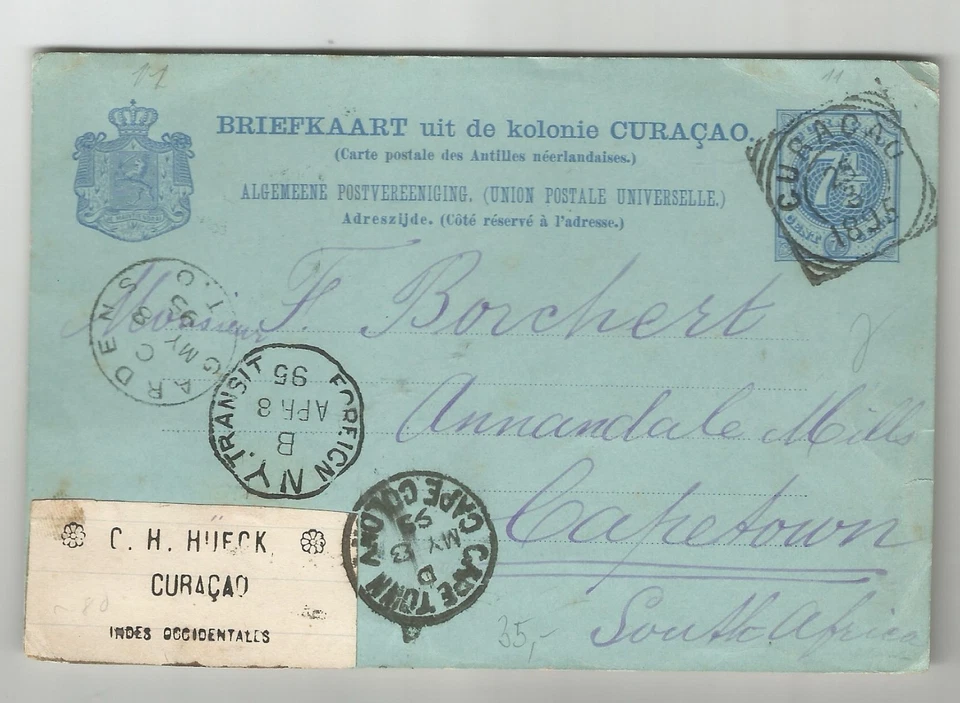 17
11
BRIEFKAART uit de kolonie CURAÇAO.
(Carte postale des Antilles néerlandaises.)
ALGEMEENE POSTVEREENIGING. (UNION POSTALE UNIVERSELLE.)
Adreszijde. (Côté réservé à l'adresse.)
7½
CURAÇAO
1895
GARDENS
C
MY 8
95
C.T.
Monsieur F. Borchert
Annandale Mills
Capetown
South Africa
N.Y. TRANSIT FOREIGN
B
APR 8
95
CAPE TOWN CAPE COLONY
D
MY 3
95
C. H. HÜECK
CURAÇAO
INDES OCCIDENTALES
80
35,-